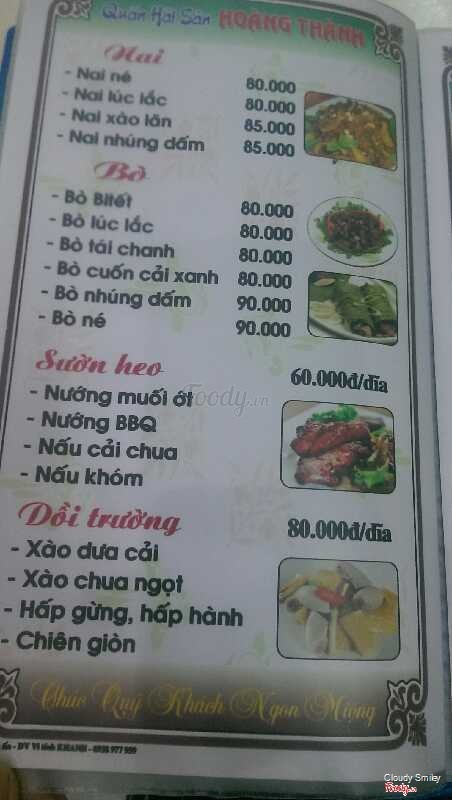 Quán Hải Sản HOÀNG THÀNH
Nai
- Nai né 80.000
- Nai lúc lắc 80.000
- Nai xào lăn 85.000
- Nai nhúng dấm 85.000
Bò
- Bò Bitết 80.000
- Bò lúc lắc 80.000
- Bò tái chanh 80.000
- Bò cuốn cải xanh 80.000
- Bò nhúng dấm 90.000
- Bò né 90.000
Sườn heo 60.000đ/dĩa
- Nướng muối ớt
- Nướng BBQ
- Nấu cải chua
- Nấu khóm
Dồi trường 80.000đ/dĩa
- Xào dưa cải
- Xào chua ngọt
- Hấp gừng, hấp hành
- Chiên giòn
Chúc Quý Khách Ngon Miệng
ấn - DV Vi tính KHANH - 0938 977 959
Foody.vn
Cloudy Smiley
Foody.vn